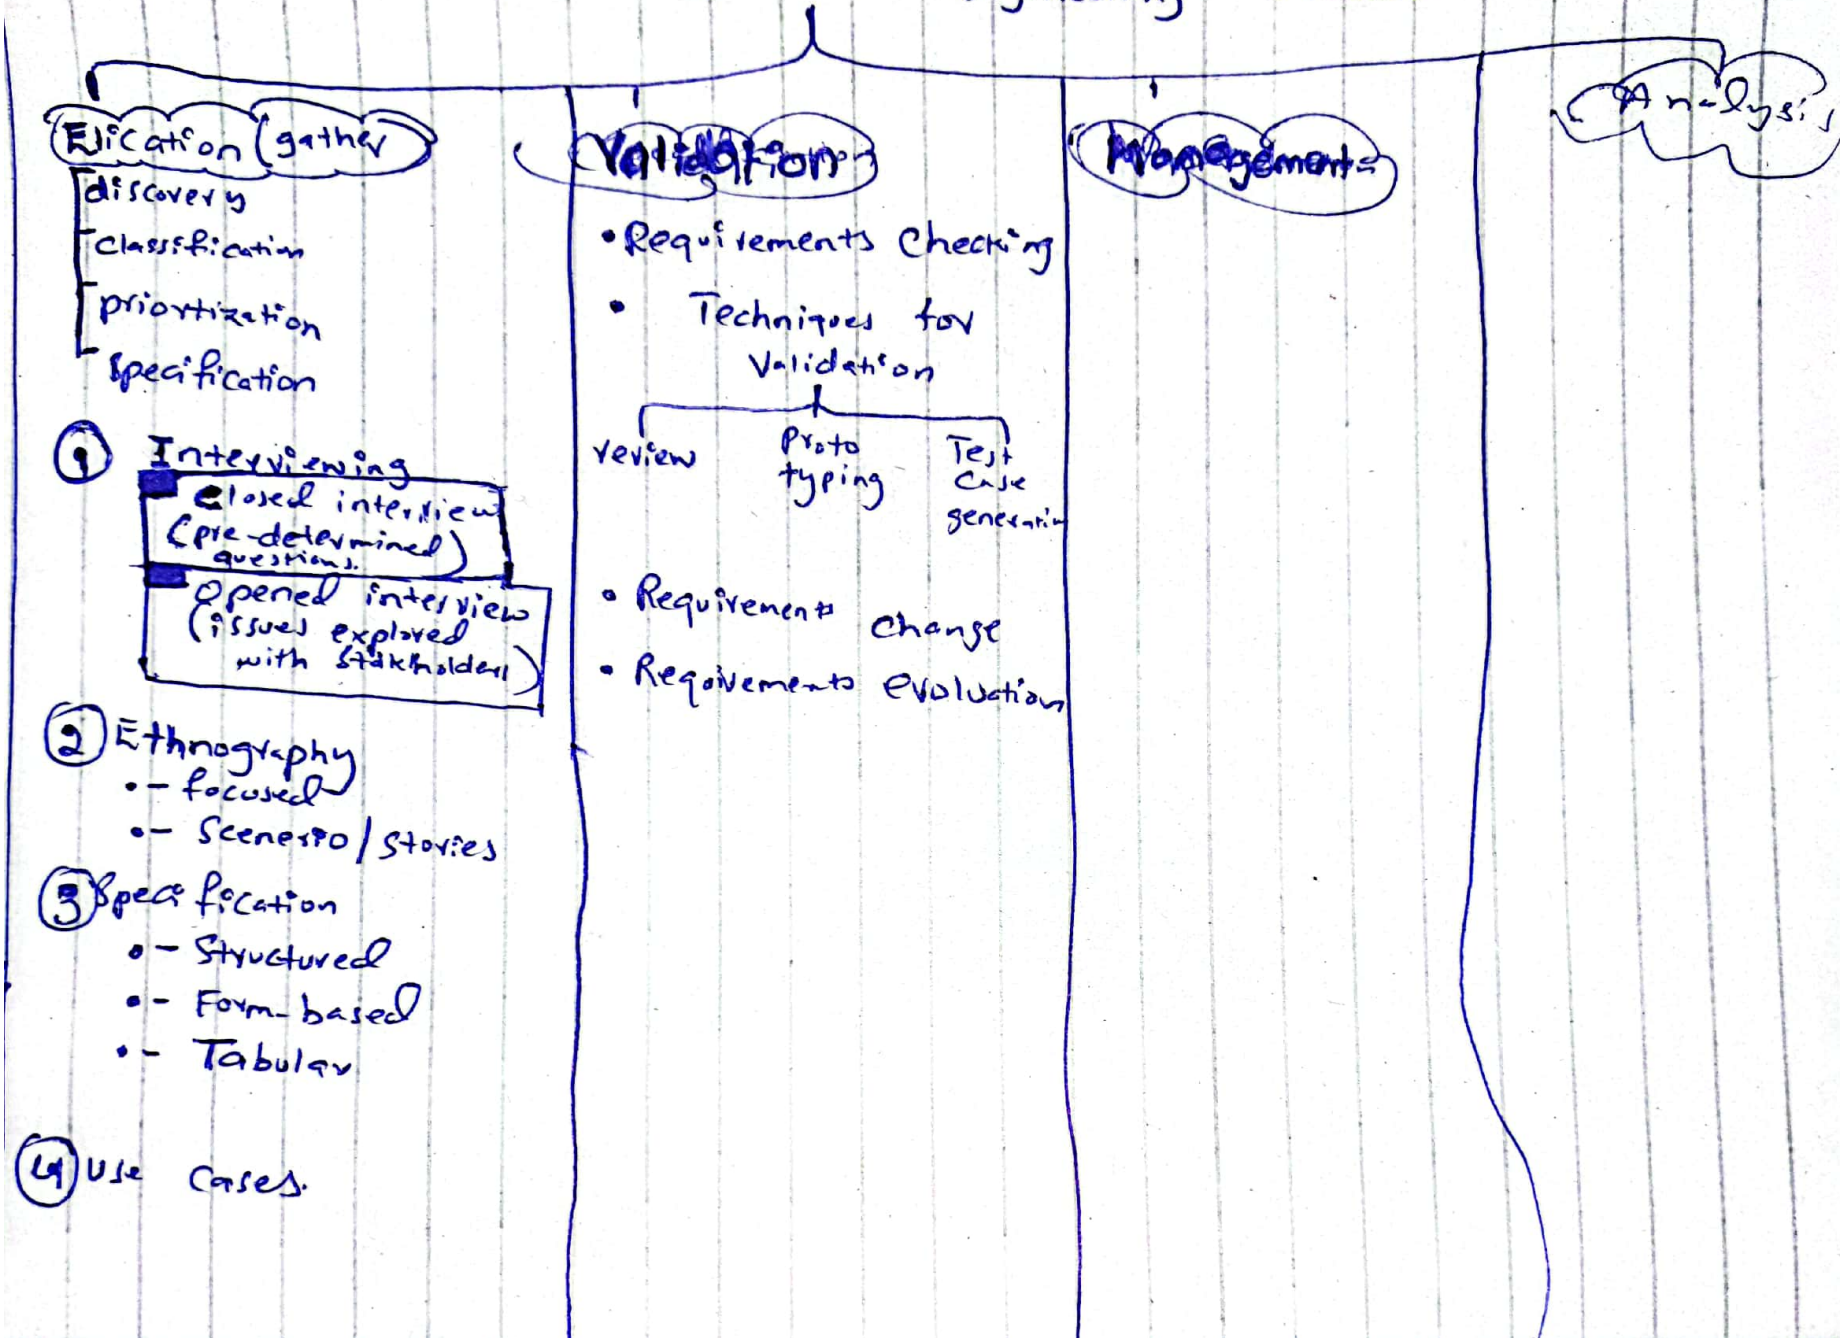 Elication (gather
discovery
classification
priortization
specification
1 Interviewing
closed interview
(pre-determined)
questions.
opened interview
(issues explored
with stakholders)
2 Ethnography
- focused
- Scenerio / Stories
3 Specification
- Structured
- Form-based
- Tabular
4 Use Cases.
Validation
• Requirements Checking
• Techniques for
Validation
review
Proto
typing
Test
Case
generation
• Requirements
change
• Requirements evolution
Management
Analysis